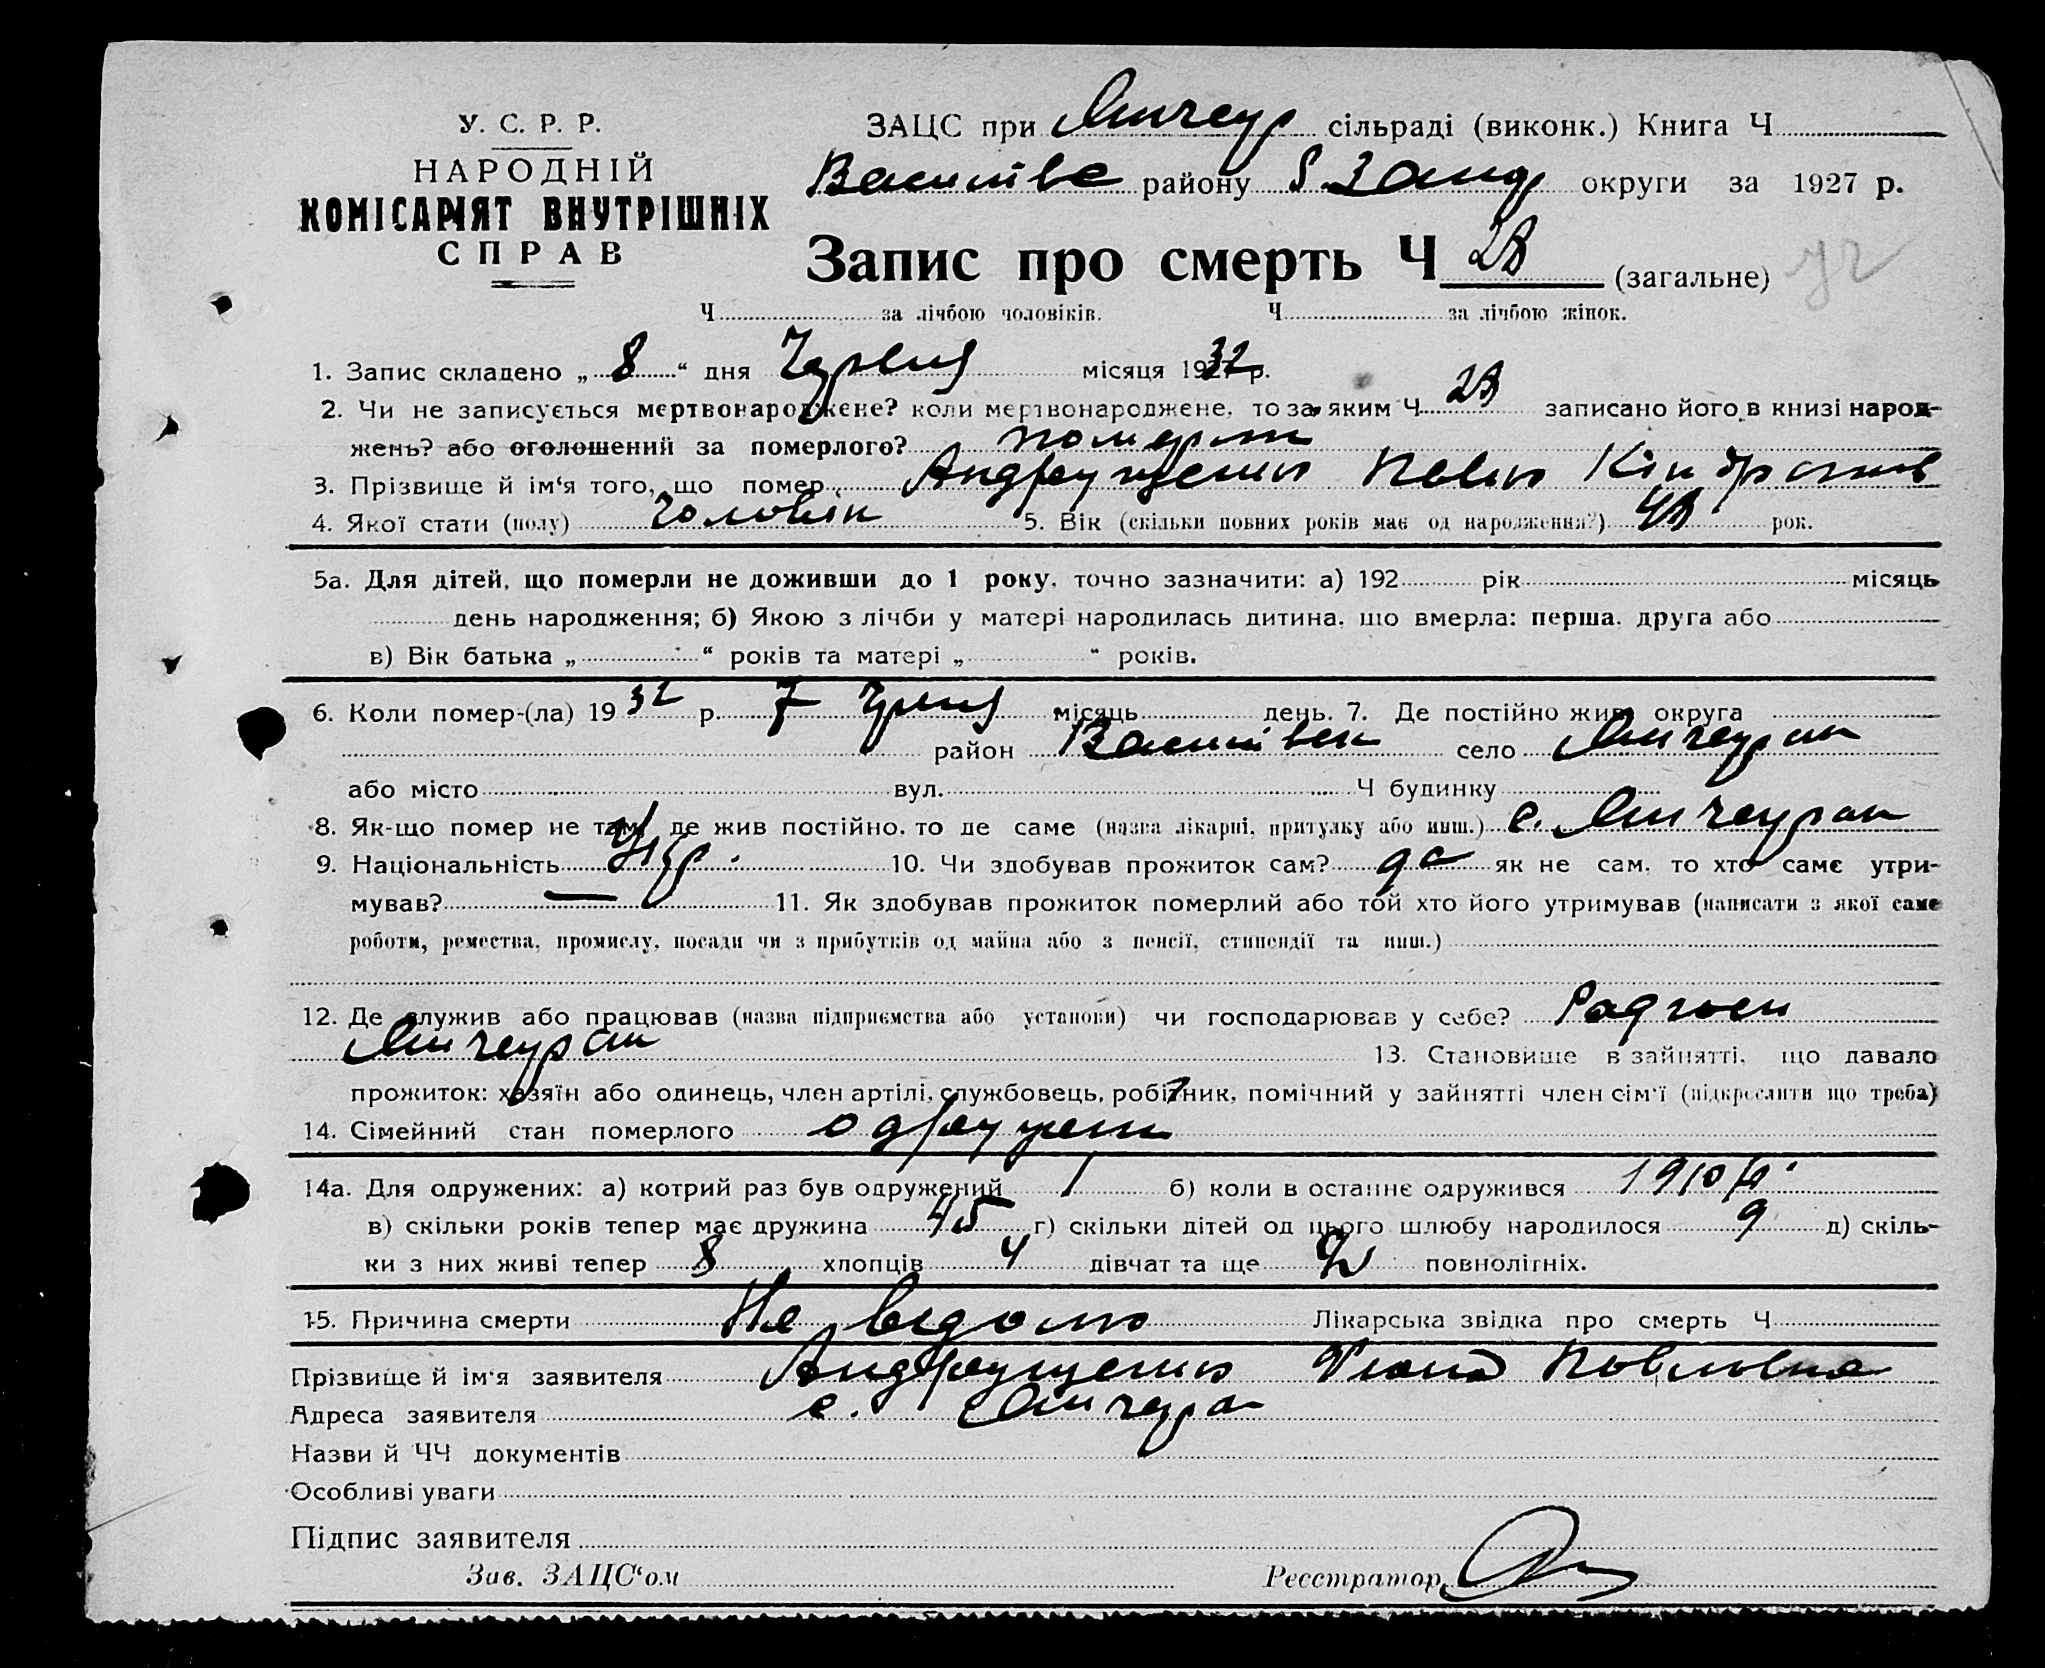 У. С. Р. Р.
НАРОДНІЙ
КОМІСАРІЯТ ВНУТРІШНІХ
СПРАВ
ЗАЦС при Мичеур сільраді (виконк.) Книга Ч
Василівс району б. Запор округи за 1927 р.
Запис про смерть Ч 28 (загальне)
Ч за лічбою чоловіків. Ч за лічбою жінок.
1. Запис складено „ 8 “ дня Червня місяця 1932 р.
2. Чи не записується мертвонароджене? коли мертвонароджене, то за яким Ч 28 записано його в книзі народ-
жень? або оголошений за померлого? померли
3. Прізвище й ім‘я того, що помер Андрущенко Павло Кіндратов
4. Якої стати (полу) Чоловік 5. Вік (скільки повних років має од народження?) 48 рок.
5а. Для дітей, що померли не доживши до 1 року, точно зазначити: а) 192 рік місяць
день народження; б) Якою з лічби у матері народилась дитина, що вмерла: перша, друга або
в) Вік батька „ “ років та матері „ “ років.
6. Коли помер-(ла) 1932 р. 7 Червня місяць день. 7. Де постійно жив округа
район Василівськ село Мичеурин
або місто вул. Ч будинку
8. Як-що помер не там, де жив постійно, то де саме (назва лікарні, притулку або инш.) с. Мичеурин
9. Національність Укр. 10. Чи здобував прожиток сам? да як не сам, то хто саме утри-
мував? — 11. Як здобував прожиток померлий або той хто його утримував (написати з якої саме
роботи, ремества, промислу, посади чи з прибутків од майна або з пенсії, стипендії та инш.)
12. Де служив або працював (назва підприємства або установи) чи господарював у себе? Радгосп
Мичеурин 13. Становище в зайнятті, що давало
прожиток: хазяїн або одинець, член артілі, службовець, робітник, помічний у зайнятті член сім‘ї (підкреслити що треба)
14. Сімейний стан померлого одружен
14а. Для одружених: а) котрий раз був одружений 1 б) коли в останнє одружився 1910 р.
в) скільки років тепер має дружина 45 г) скільки дітей од цього шлюбу народилося 9 д) скіль-
ки з них живі тепер 8 хлопців 4 дівчат та ще повнолітніх.
15. Причина смерти Не відомо Лікарська звідка про смерть Ч
Прізвище й ім‘я заявителя Андрущенко Павловна
Адреса заявителя с. Мичеурин
Назви й ЧЧ документів
Особливі уваги
Підпис заявителя
Зав. ЗАЦС‘ом Реєстратор